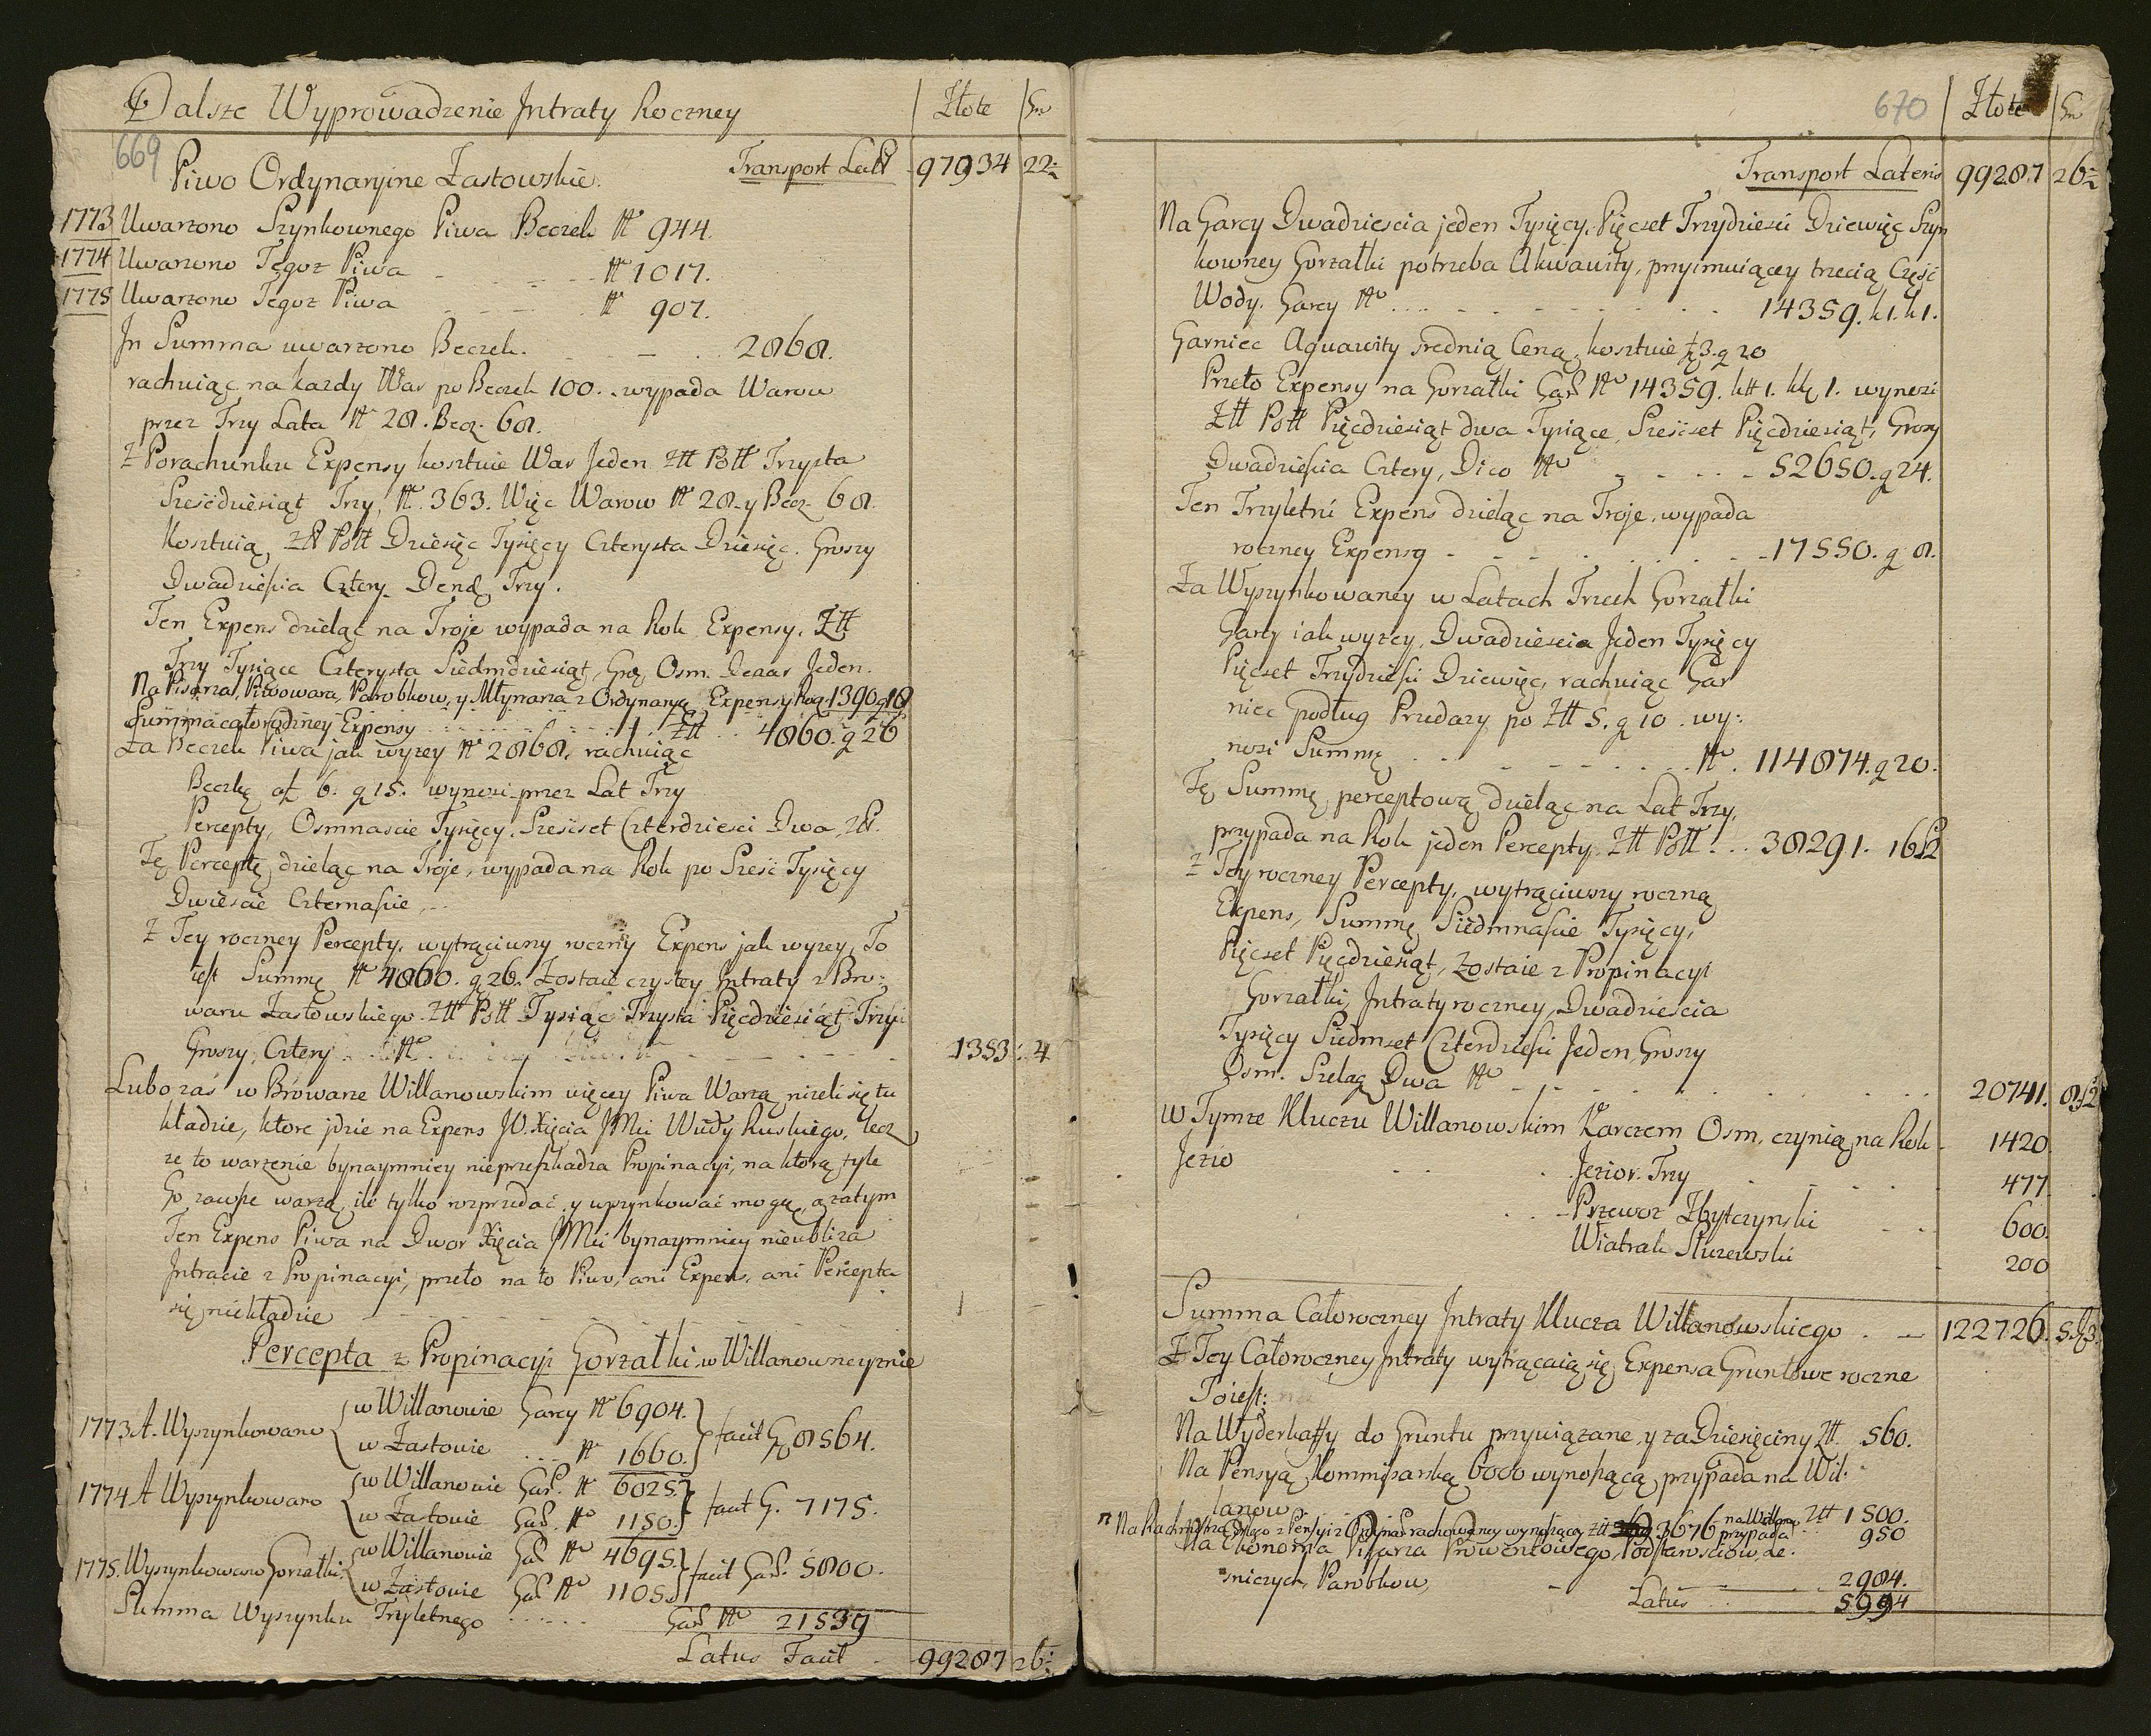 Dalsze Wyprowadzenie Jntraty Roczney Złote Gr
669
Piwo Ordynaryine Zastowskie. Transport Latt 97934 22
1773 Uwarzono Szynkownego Piwa Beczek No 944.
1774 Uwarzono Tegoz Piwa No 1017.
1775 Uwarzono Tegoz Piwa No 907.
Jn Summa uwarzono Beczek. 2868.
rachuiąc na kazdy War po Beczek 100. wypada Warow
przez Trzy Lata No 28. Becz. 68.
Z Porachunku Expensy kosztuie War Jeden Ztt Pott Trzysta
Sześćdziesiąt Trzy, No 363. Więc Warow No 28. y Becz. 68.
Kosztuią, Ztt Pott Dziesięc Tysięcy Czterysta Dziesięc. Groszy
Dwadzieścia Cztery Den Trzy.
Ten Expens dzieląc na Troje wypada na Rok Expensy. Ztt
Trzy Tysiące Czterysta Siedmdziesiąt, Gro, Osm. Denar Jeden.
Na Pisarza, Piwowara, Parobkow, y Młynarza z Ordynaryą Expensy Rog. 1390 g 18
Summa całoroczney Expensy Ztt 4860. g 26
Za Beczek Piwa jak wyzey No 2868. rachuiąc
Beczkę af 6. g 15. wynosi przez Lat Trzy
Percepty, Osmnascie Tysięcy. Sześćset Czterdziesci Dwa, ztt.
Tę Perceptę dzieląc na Troje, wypada na Rok po Sześć Tysięcy
Dwieście Czternaście,
Z Tey roczney Percepty, wytrąciwszy roczny Expens jak wyzey, To
iest Summę No 4860. g 26. Zostaie czystey Jntraty z Bro:
waru Zastowskiego Ztt Pott Tysiąc Trzysta Pięcdziesiąt Trzy
Groszy, Cztery No 1353 4
Lubo zas w Browarze Willanowskim więcey Piwa Warzą nizeli się tu
kładzie, ktore jdzie na Expens JO. Xięcia JMci Wudy Ruskiego, lecz
ze to warzenie bynaymniey nieprzeszkadza Propinacyi, na którą tyle
Go zawsze warzą, ile tylko rozprzedać y wyszynkować mogę, a zatym
Ten Expens Piwa na Dwor Xięcia JMci bynaymniey nieubliza
Jntracie z Propinacyi, przeto na to Piwo, ani Expens, ani Percepta
się niekładzie
Percepta z Propinacyi Gorzałki w Willanowneyznie
1773 A. Wyszynkowano w Willanowie Garcy No 6904.
w Zastowie No 1660. facit G. 8564.
1774 A Wyszynkowano w Willanowie Gar. No 6025.
w Zastowie Gar. No 1150. facit G. 7175.
1775. Wyszynkowano Gorzałki w Willanowie Gar No 4695.
w Zastowie Gar No 1105. facit Gar. 5800.
Summa Wyszynku Trzyletnego Gar No 21539
Latus Facit 99287 26
670 Złote Gr
Transport Lateris 99287 26
Na Garcy Dwadziescia jeden Tysięcy, Pięcset Trzydziesci Dziewięc Szyn
kowney Gorzałki potrzeba Akwawity, przyimuiącey trzecią Część
Wody. Garcy No 14359. k1. k1.
Garniec Aquawity srednią Ceną, kosztuie zł 3. g 20
Przeto Expensy na Gorzałki Gar No 14359. ktt 1. kk 1. wynosi
Ztt Pott Pięcdziesiąt dwa Tysiące, Sześćset Pięcdziesiąt, Groszy
Dwadzieścia Cztery, Dico No 52650. g 24.
Ten Trzyletni Expens dzieląc na Troje, wypada
roczney Expensy 17550. g 8.
Za Wyszynkowaney w Latach Trzech Gorzałki
Garcy iak wyzey, Dwadziescia Jeden Tysięcy
Pięcset Trzydzieści Dziewięc, rachuiąc Gar
niec podług Przedazy po Ztt 5. g 10. wy:
nosi Summę No. 114874. g 20.
Tę Summę perceptową dzieląc na Lat Trzy,
przypada na Rok jeden Percepty Ztt Pott 38291. 16
Z Tey roczney Percepty, wytrąciwszy roczną
Expens, Summę Siedmnaście Tysięcy,
Pięcset Pięcdziesiąt, Zostaie z Propinacyi
Gorzałki, Jntraty roczney, Dwadziescia
Tysięcy Siedmset Czterdzieści Jeden Groszy
Osm. Szeląg Dwa No 20741. 8 2
w Tymze Kluczu Willanowskim Karczem Osm, czynią na Rok 1420
Jezio Jezior. Trzy 477
Przewoz Zbytczynski 600.
Wiatrak Sluzewski 200
Summa Całoroczney Jntraty Klucza Willanowskiego 122726. 5 3.
Z Tey Całoroczney Jntraty wytrącaią się Expensa Gruntowe roczne
Toiest:
Na Wyderkaffy do Gruntu przywiązane, y za Dziesięciny Ztt. 560.
Na Pensyą Kommissarską 6000 wynoszącą, przypada na Wil:
lanow Ztt 1500.
Na z Pensyi z Ordynar rachowaney wynoszący Ztt 3676 na Willanow przypada 950
Na Ekonoma Pisarza Prowentowego, Podstarosciow, Le.
sniczych, Parobkow, 2984.
Latus 5994